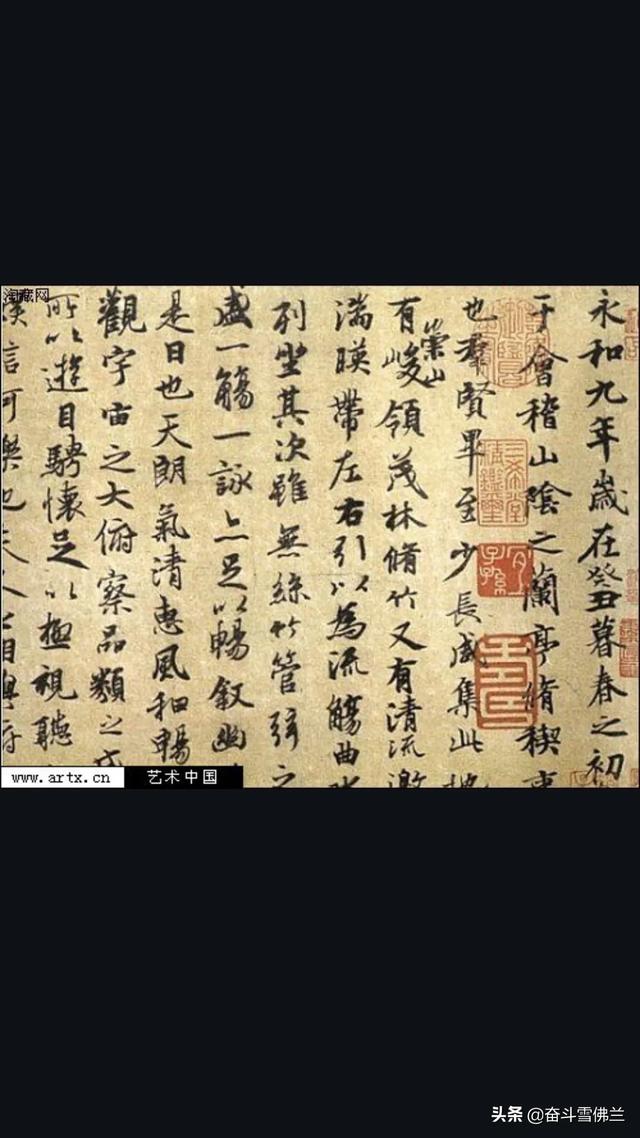 淘藏网
永和九年歲在癸丑暮春之初
于會稽山陰之蘭亭脩稧事
也羣賢畢至少長咸集此地
有崇山峻領茂林脩竹又有清流激
湍暎帶左右引以為流觴曲水
列坐其次雖無絲竹管弦之
盛一觴一詠亦足以暢叙幽
是日也天朗氣清惠風和暢
觀宇宙之大俯察品類之盛
所以遊目騁懷足以極視聽
信可樂也夫人之相與俯
三希堂精鑑璽
宜子孫
www.artx.cn
艺术中国
头条 @奋斗雪佛兰